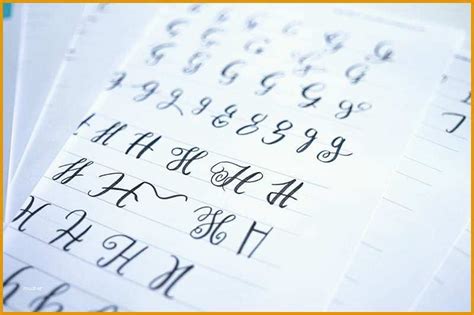 G G G G G
G G G G G
G G G G G g
g g g g g g g g g
H H H H H H
H H H H
H H H H H